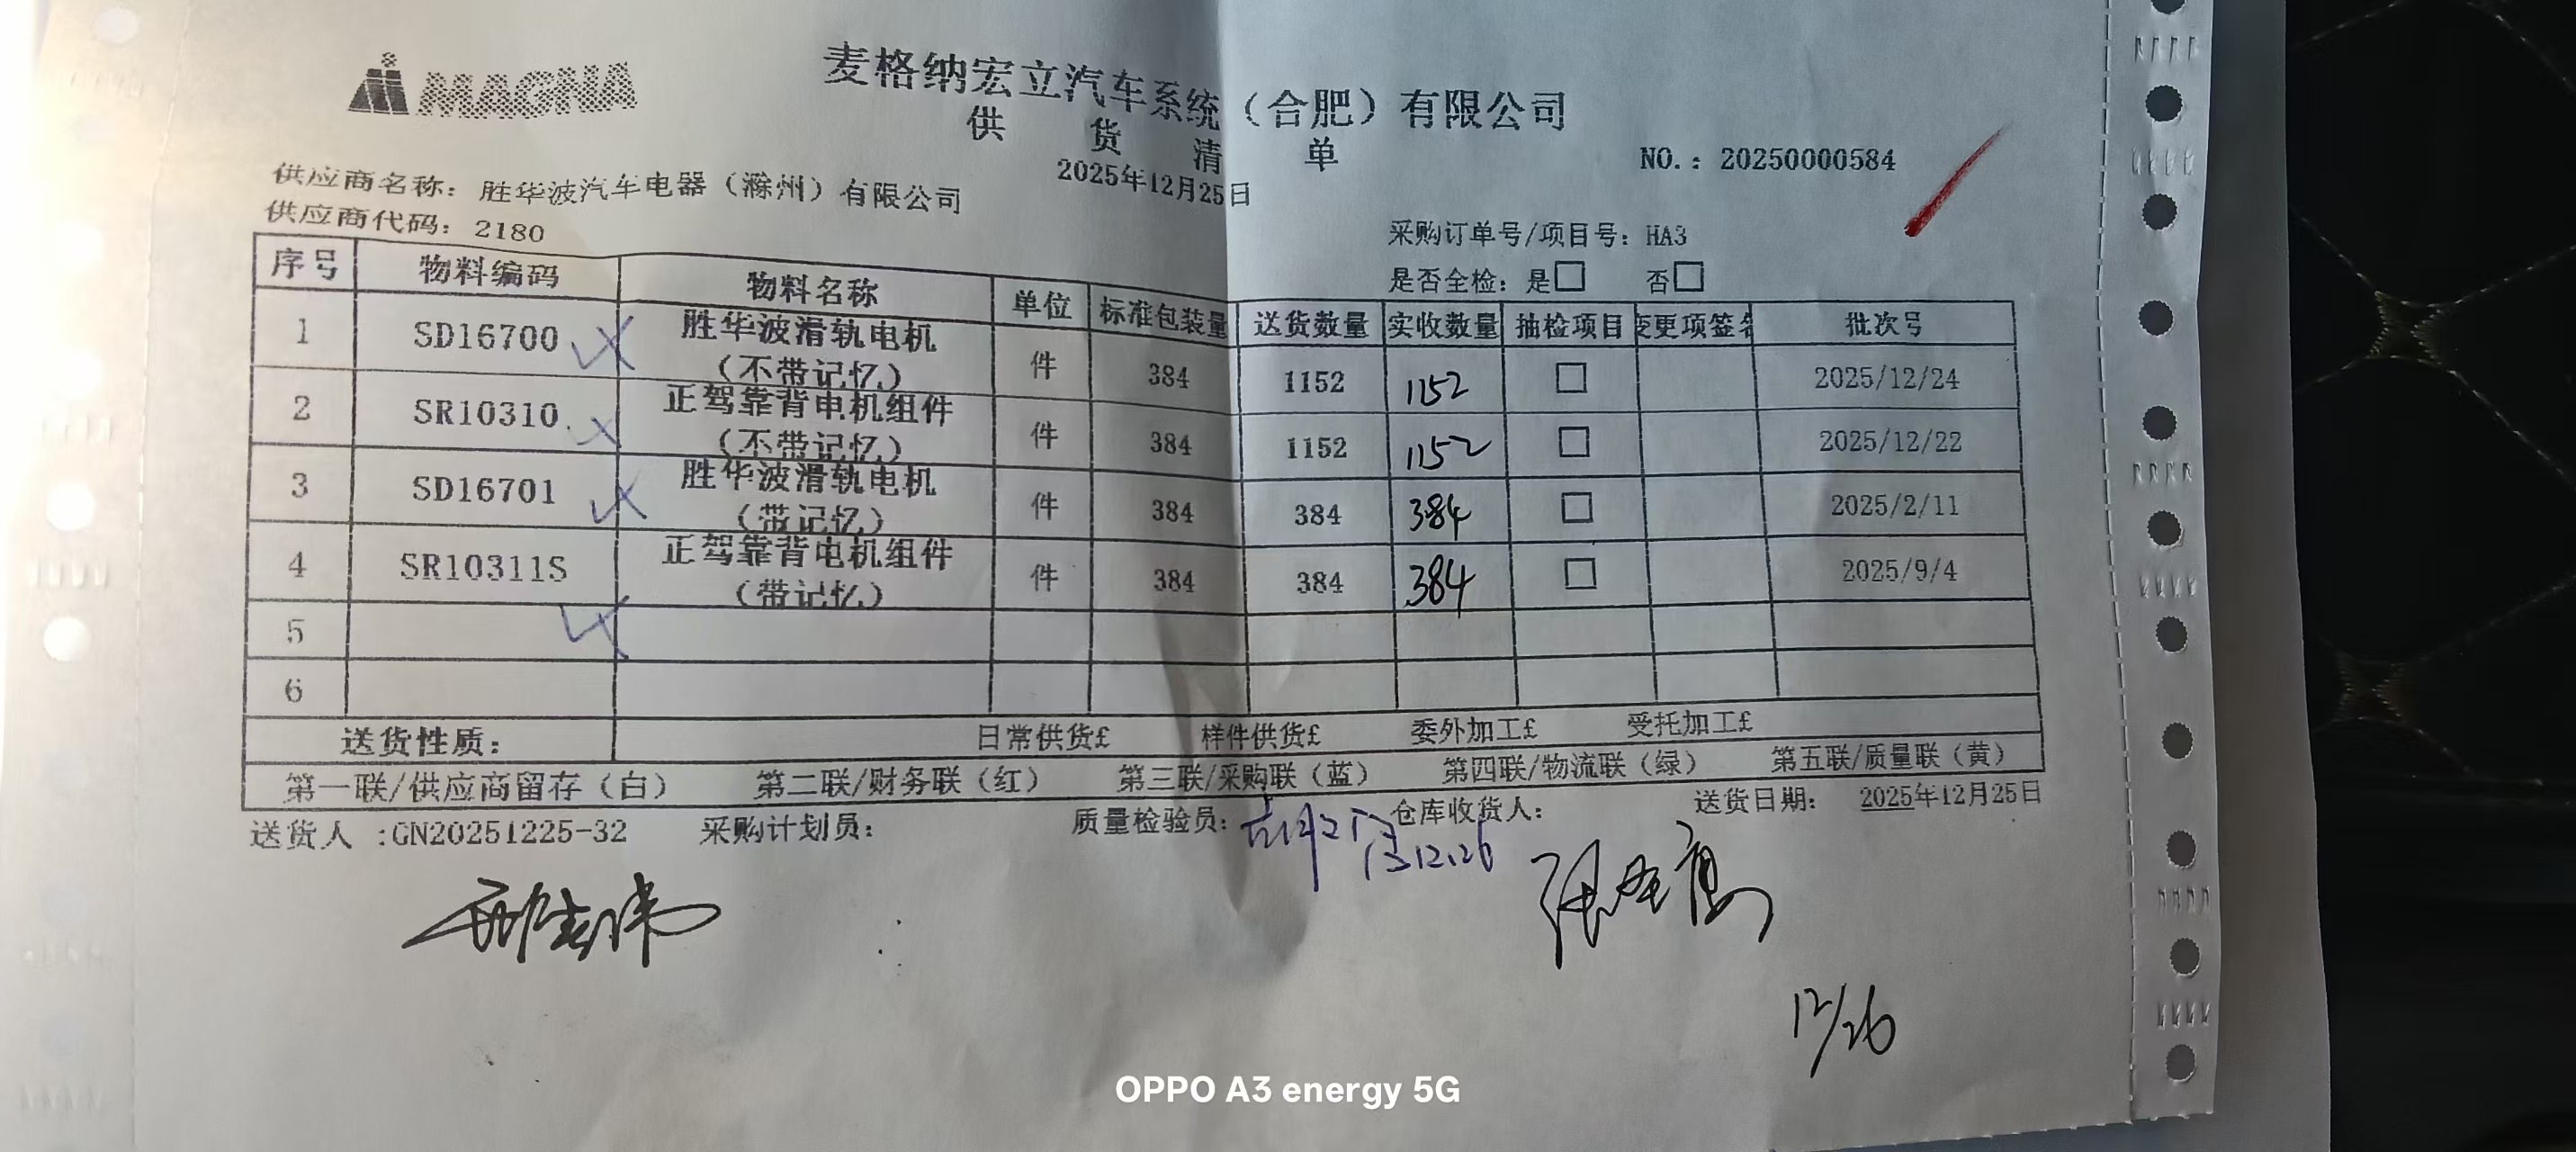 MAGNA
麦格纳宏立汽车系统（合肥）有限公司
供货清单
2025年12月25日
NO.：20250000584
供应商名称：胜华波汽车电器（滁州）有限公司
供应商代码：2180
采购订单号/项目号：HA3
是否全检：是□ 否□
序号 物料编码 物料名称 单位 标准包装量 送货数量 实收数量 抽检项目 变更项签名 批次号
1 SD16700 胜华波滑轨电机（不带记忆） 件 384 1152 1152 □ 2025/12/24
2 SR10310 正驾靠背电机组件（不带记忆） 件 384 1152 1152 □ 2025/12/22
3 SD16701 胜华波滑轨电机（带记忆） 件 384 384 384 □ 2025/2/11
4 SR10311S 正驾靠背电机组件（带记忆） 件 384 384 384 □ 2025/9/4
5
6
送货性质： 日常供货£ 样件供货£ 委外加工£ 受托加工£
第一联/供应商留存（白） 第二联/财务联（红） 第三联/采购联（蓝） 第四联/物流联（绿） 第五联/质量联（黄）
送货人 :GN20251225-32 采购计划员： 质量检验员： 仓库收货人： 送货日期： 2025年12月25日
12.26
12/26
OPPO A3 energy 5G